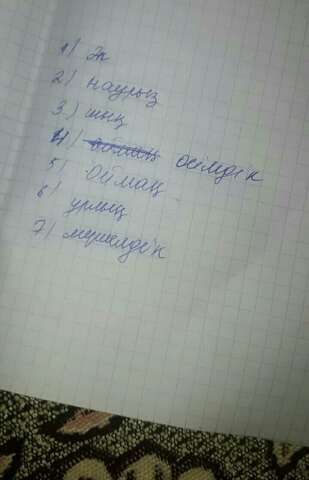 1) Эн
2) наурыз
3) шың
4) өсімдік
5) аймақ
6) урлық
7) мүшелдік